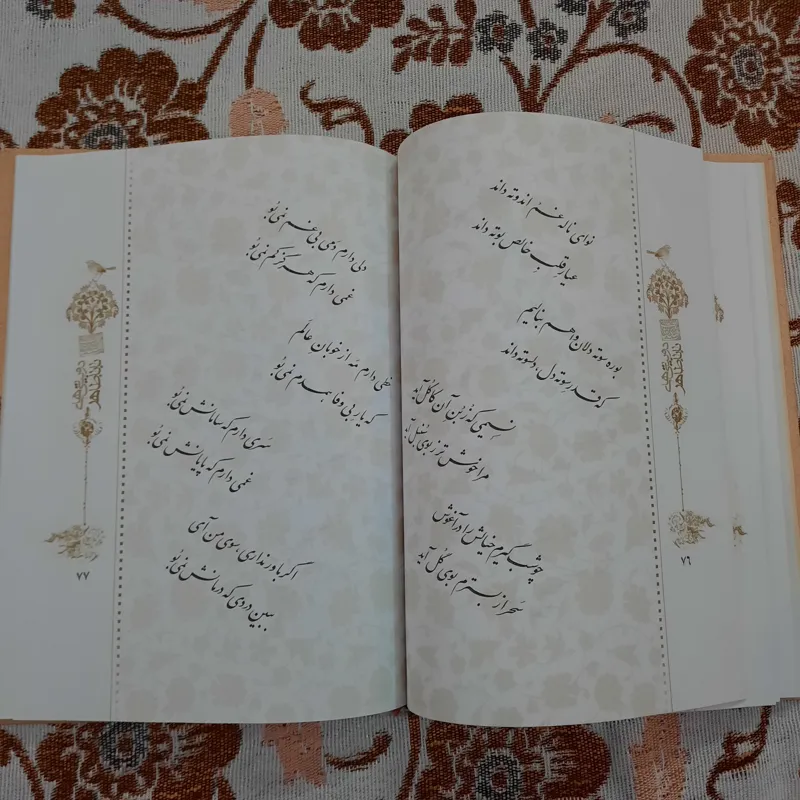 نوای ناله غم اندوته دوند
عیار قلب خالص بوته دوند
بوره سوته دلان واهم بنالیم
که قدر سوته دل، دلسوته دوند
نسیمی که ز بن آن کاکل آیو
مرا خوش تر ز بوی سنبل آیو
چو شب گیرم خیالش را در آغوش
سحر از بسترم بوی گل آیو
۷۶
دلی دارم دمی بی غم نمی بو
غمی دارم که هرگز کم نمی بو
خطی دارم مه از خوبان عالم
که یار بی وفا همدم نمی بو
سری دارم که سامانش نمی بو
غمی دارم که پایانش نمی بو
اگر باور نداری، سوی من آی
ببین دردی که درمانش نمی بو
۷۷